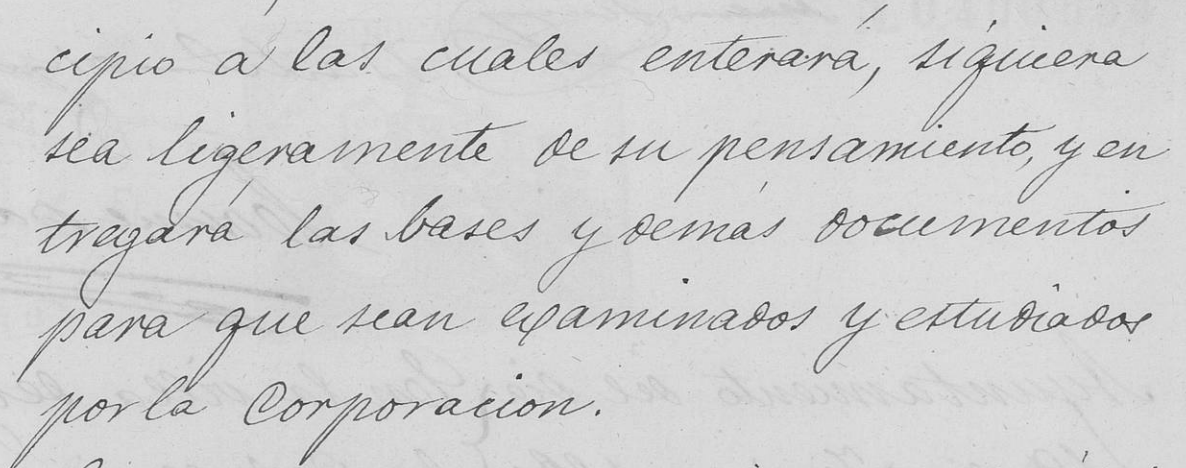 cipio á las cuales enterará, siquiera
sea ligeramente de su pensamiento, y en
tregará las bases y demás documentos
para que sean examinados y estudiados
por la Corporacion.